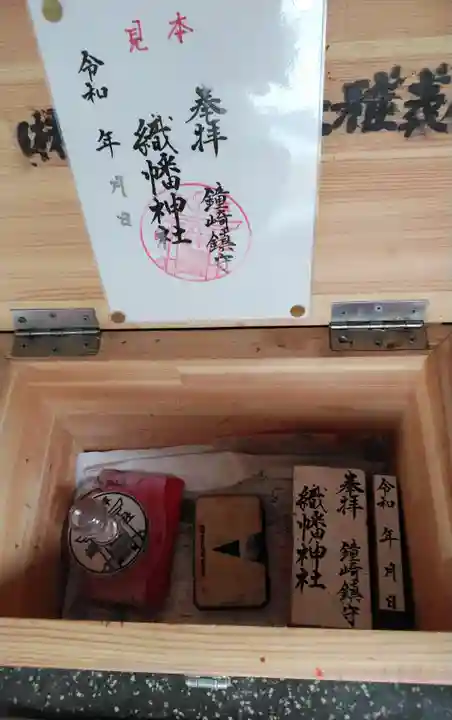 見本
奉拝
鐘崎鎮守
織幡神社
令和 年 月 日
奉拝
鐘崎鎮守
織幡神社
令和 年 月 日